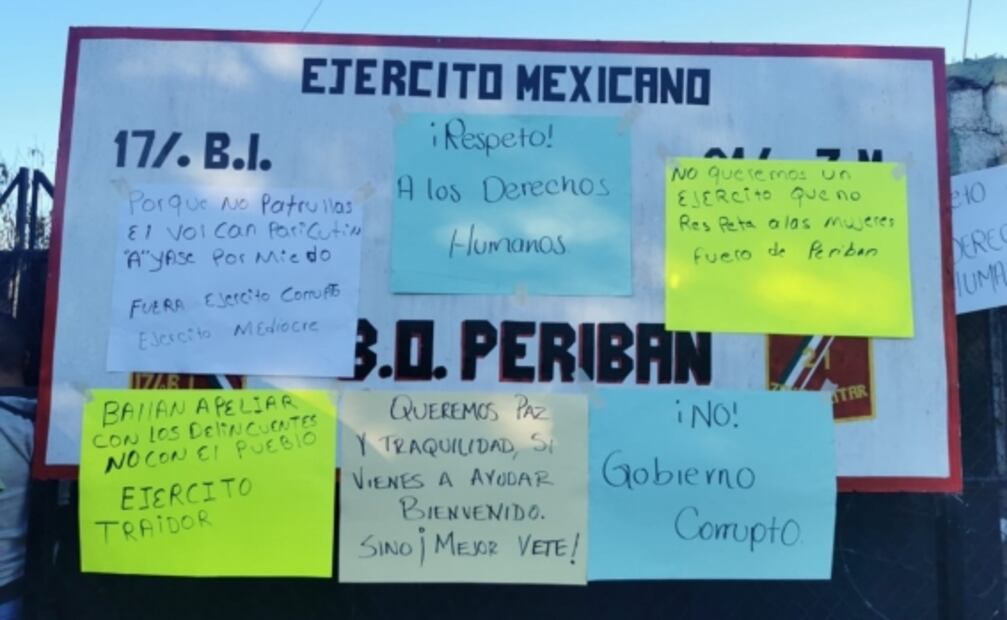 EJERCITO MEXICANO
17/. B.I.
¡Respeto!
A los Derechos
Humanos.
Porque no Patrullas
El Volcan Paricutin
"A" yase Por Miedo
FUERA Ejercito Corrupto
Ejercito MEdiocre
No queremos un
EJERCITO Que no
Res Peta a las mujeres
Fuero de Periban
B.O. PERIBAN
17/.B.I
21
BALLAN APELIAR
CON LOS DELINCUENTES
NO CON El PUEBlO
EJERCITO
TRAIDOR
QUEREMOS PAZ
Y TRAQUILIDAD, SI
VIENES A AYUDAR
BIENVENIDO.
SINO ¡ MEJOR VETE!
¡NO!
Gobierno
Corrupto.